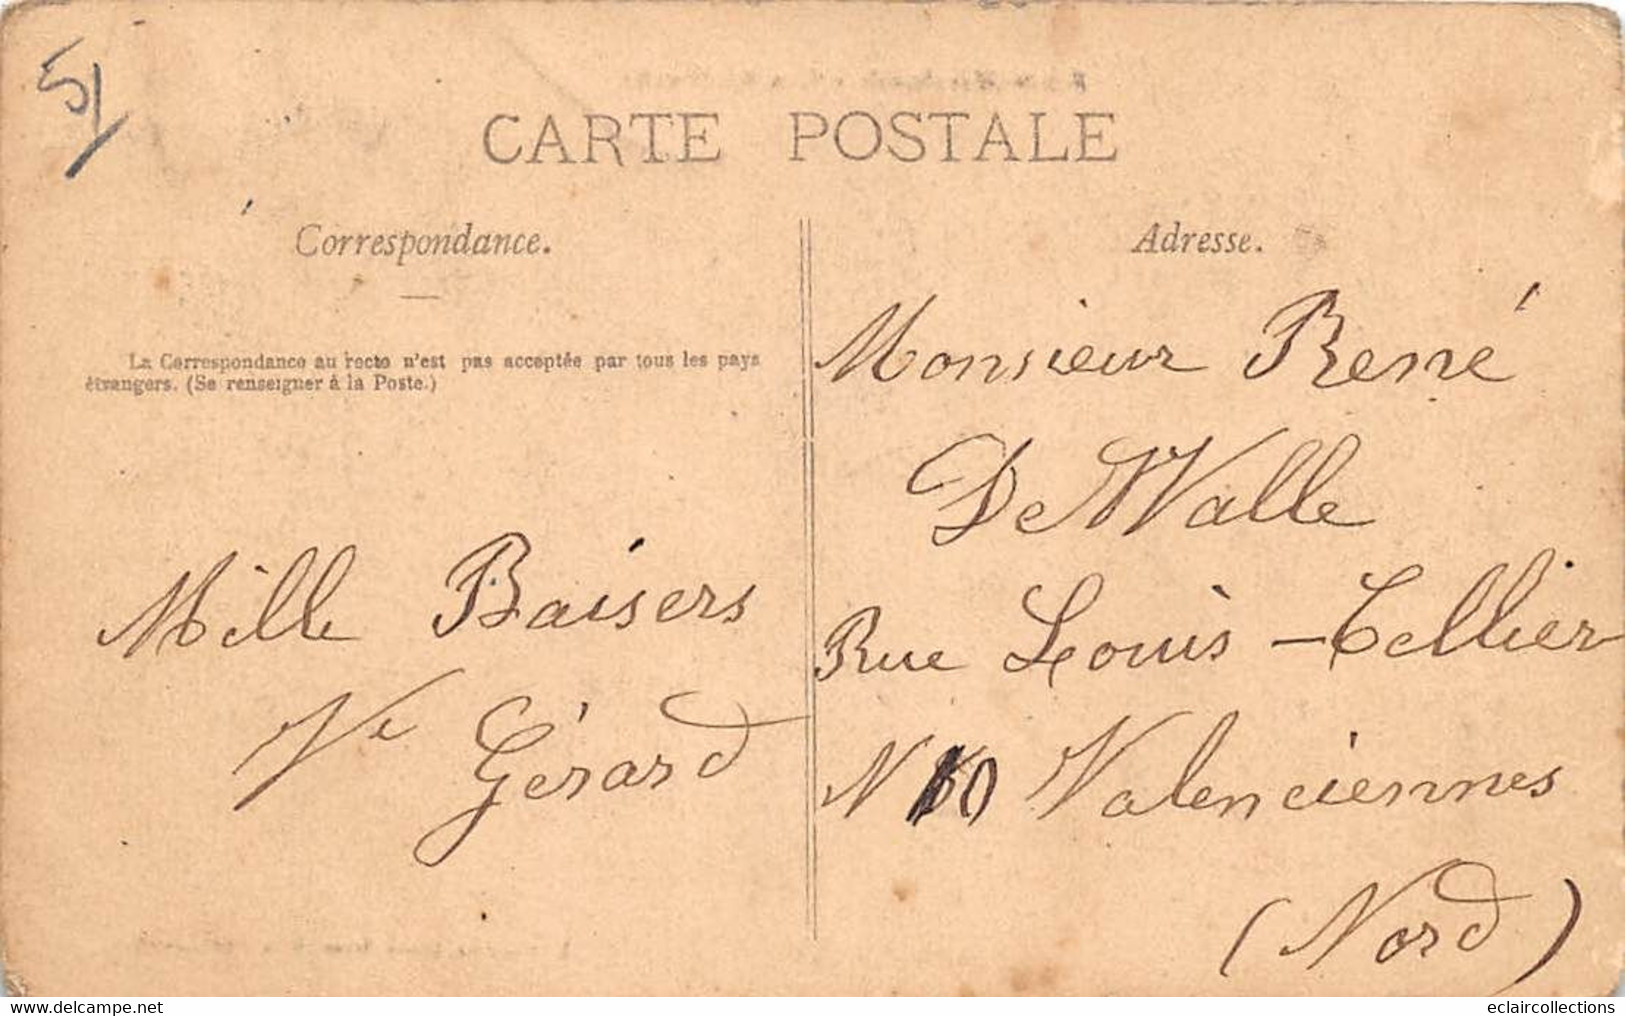 51
CARTE POSTALE
Correspondance.
La Correspondance au recto n'est pas acceptée par tous les pays
étrangers. (Se renseigner à la Poste.)
Mille Baisers
Ve Gérard
Adresse.
Monsieur René
De Walle
Rue Louis-Cellier
N 10 Valenciennes
(Nord)
www.delcampe.net
eclaircollections